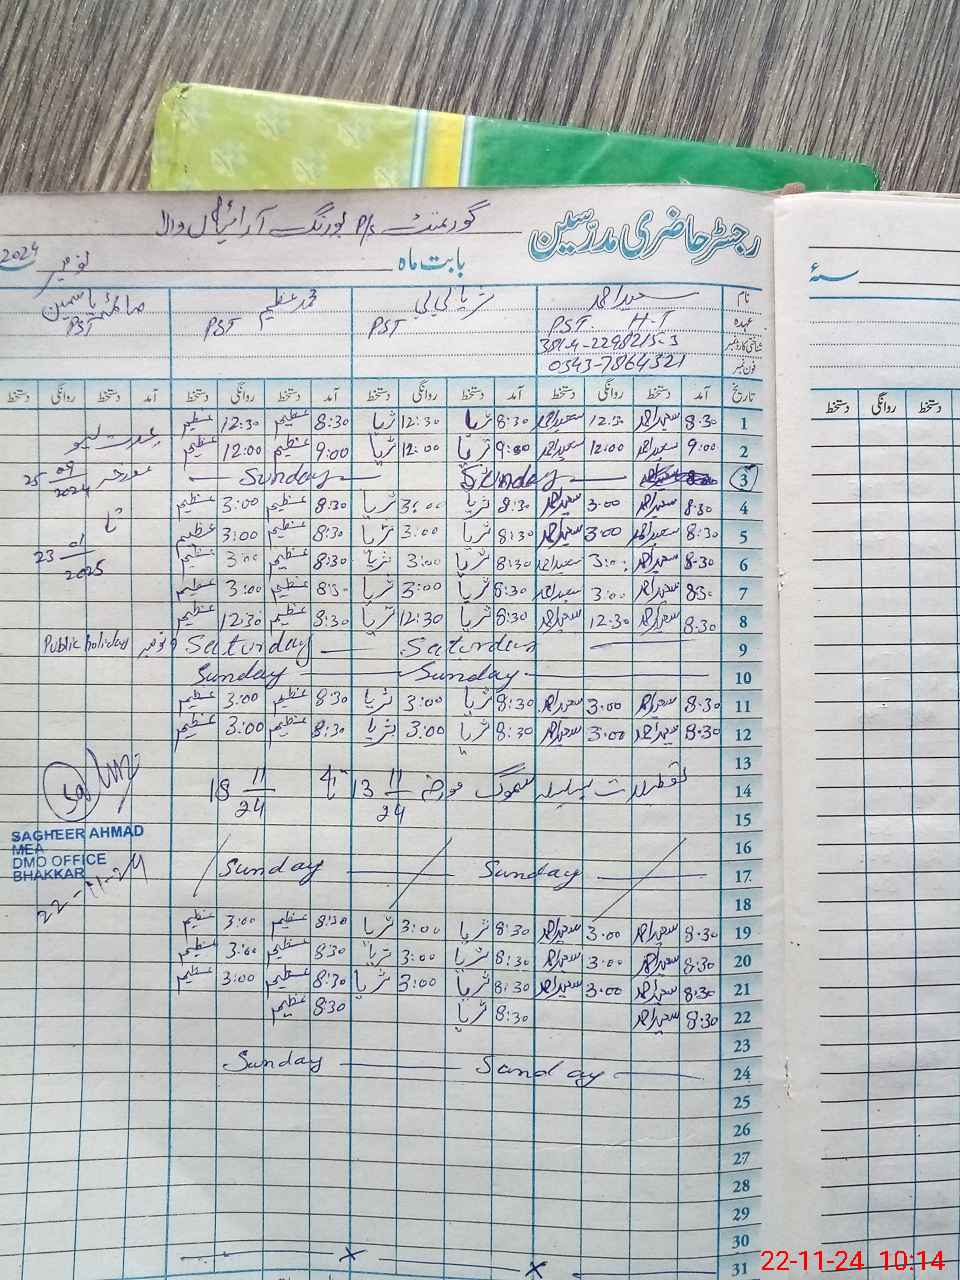 رجسٹر حاضری مدرسین
گورنمنٹ P/S بورنگ آرائیاں والا
بابت ماہ نومبر 2024
سنہٴ
نام سعید احمد ثریا بی بی محمد عظیم صائمہ یاسمین
عہدہ PST. H-T PST PST PST
شناختی کارڈ نمبر
فون نمبر 0343-7864321
تاریخ آمد دستخط روانگی دستخط آمد دستخط روانگی دستخط آمد دستخط روانگی دستخط آمد روانگی دستخط
دستخط روانگی دستخط
1 8:30 سعید احمد 12:30 سعید احمد 8:30 ثریا 12:30 ثریا 8:30 عظیم 12:30 عظیم
2 9:00 سعید احمد 12:00 سعید احمد 9:00 ثریا 12:00 ثریا 9:00 عظیم 12:00 عظیم
3 Sunday Sunday
25 09 2024
4 8:30 سعید احمد 3:00 سعید احمد 8:30 ثریا 3:00 ثریا 8:30 عظیم 3:00 عظیم
تا
5 8:30 سعید احمد 3:00 سعید احمد 8:30 ثریا 3:00 ثریا 8:30 عظیم 3:00 عظیم
23 01 2025
6 8:30 سعید احمد 3:00 سعید احمد 8:30 ثریا 3:00 ثریا 8:30 عظیم 3:00 عظیم
7 8:30 سعید احمد 3:00 سعید احمد 8:30 ثریا 3:00 ثریا 8:30 عظیم 3:00 عظیم
8 8:30 سعید احمد 12:30 سعید احمد 8:30 ثریا 12:30 ثریا 8:30 عظیم 12:30 عظیم
9 Saturday Saturday 9 نومبر Public holiday
10 Sunday Sunday
11 8:30 سعید احمد 3:00 سعید احمد 8:30 ثریا 3:00 ثریا 8:30 عظیم 3:00 عظیم
12 8:30 سعید احمد 3:00 سعید احمد 8:30 ثریا 3:00 ثریا 8:30 عظیم 3:00 عظیم
13
14 تعطیلات بسلسلہ سموگ مورخہ 13 11/24 تا 18 11/24
15
SAGHEER AHMAD
MEA
DMO OFFICE
BHAKKAR
22-11-24
16
17 Sunday Sunday
18
19 8:30 سعید احمد 3:00 سعید احمد 8:30 ثریا 3:00 ثریا 8:30 عظیم 3:00 عظیم
20 8:30 سعید احمد 3:00 سعید احمد 8:30 ثریا 3:00 ثریا 8:30 عظیم 3:00 عظیم
21 8:30 سعید احمد 3:00 سعید احمد 8:30 ثریا 3:00 ثریا 8:30 عظیم 3:00 عظیم
22 8:30 سعید احمد 8:30 ثریا 8:30 عظیم
23
24 Sunday Sunday
25
26
27
28
29
30
31
22-11-24 10:14